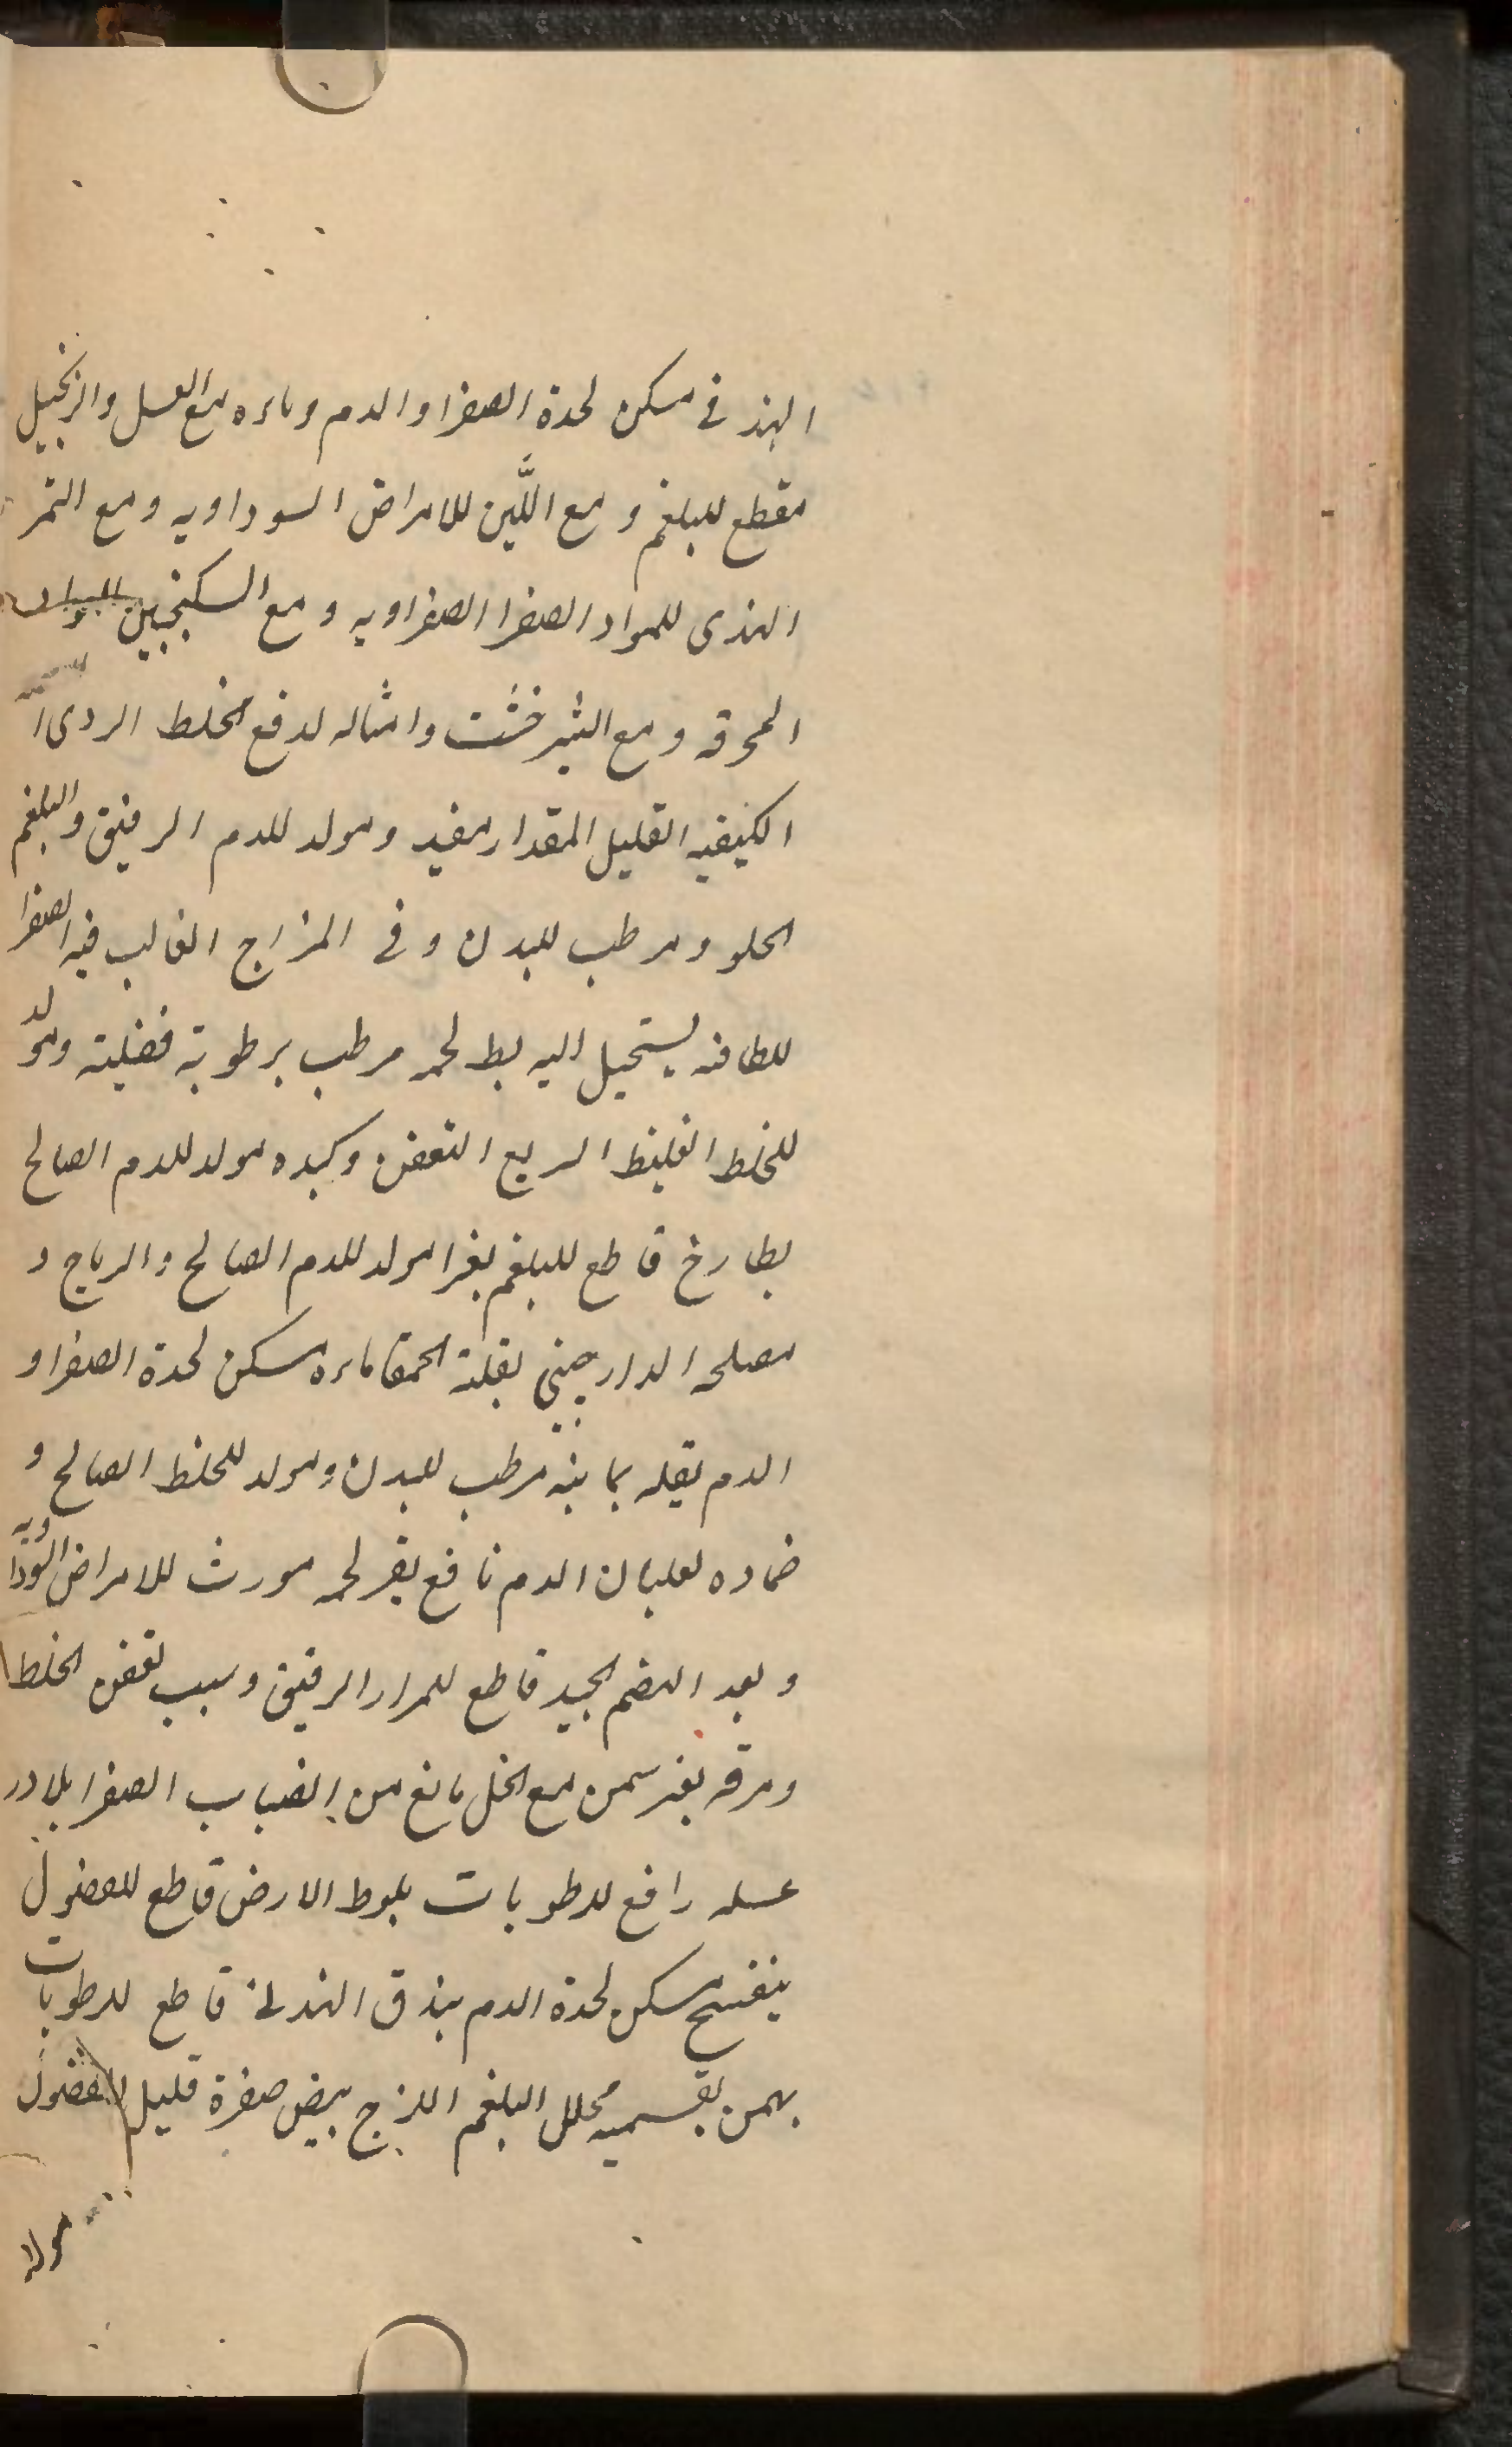 الهندی مسکن لحدة الصفرا والدم وماءه مع العسل والزنجبیل
مقطع للبلغم و مع اللَّبن للامراض السوداویه و مع التمر
الهندی للمواد الصفرا الصفراویه و مع السکنجبین
المحرقه و مع الشیرخشت وامثاله لدفع الخلط الردی
الکیفیه القلیل المقدار مفید ومولد للدم الرقیق والبلغم
الحلو ومرطب للبدن وفی المزاج الغالب فیه الصفرا
للطافته یستحیل الیه بط لحمه مرطب برطوبة فضلیة ومولد
للخلط الغلیظ السریع التعفن وکبده مولد للدم الصالح
بطارخ قاطع للبلغم بغرا مولد للدم الصالح والریاح و
مصلحه الدارچینی بقلة الحمقا ماءه مسکن لحدة الصفرا و
الدم بقله یمانیه مرطب للبدن ومولد للخلط الصالح و
ضماده لغلیان الدم نافع بقر لحمه مورث للامراض السوداویه
وبعد الهضم الجید قاطع للمرار الرقیق وسبب تعفن الخلط
ومرقه بغیر سمن مع الخل مانع من انصباب الصفرا بلادر
عسله رافع للرطوبات بلوط الارض قاطع للفضول
بنفسج مسکن لحدة الدم بندق الهندی قاطع للرطوبات
بهمن بقسمیه محلل البلغم اللزج بیض صفرة قلیل الفضول
مولد